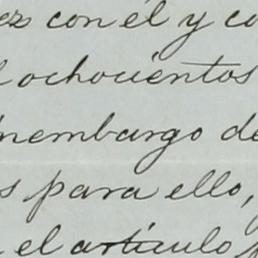 ez con él y co
ochocientos
nembargo de
s para ello,
el artículo